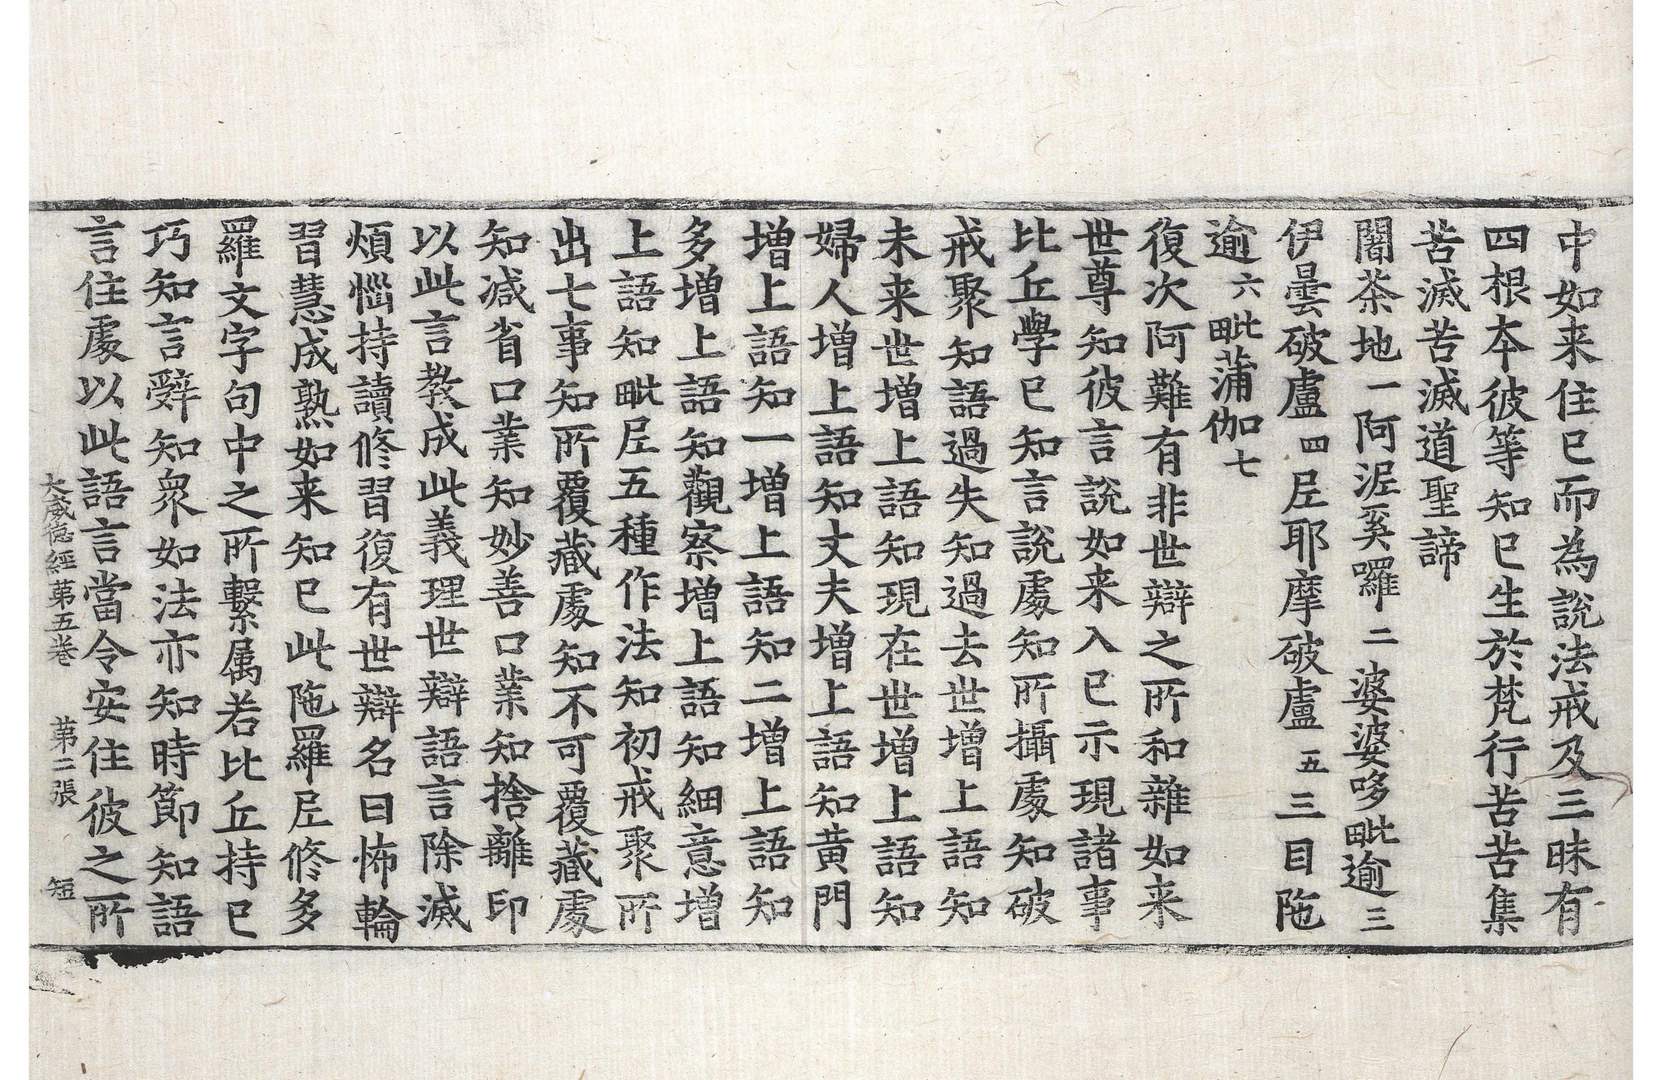 中如来住已而為說法戒及三昧有
四根本彼等知已生於梵行苦苦集
苦滅苦滅道聖諦
闍荼地一阿泥奚囉二婆婆哆毗逾三
伊曇破盧四尼耶摩破盧五三目陁
逾六毗蒲伽七
復次阿難有非世辯之所和雜如来
世尊知彼言說如来入已示現諸事
比丘學已知言說處知所攝處知破
戒聚知語過失知過去世增上語知
未来世增上語知現在世增上語知
婦人增上語知丈夫增上語知黄門
增上語知一增上語知二增上語知
多增上語知觀察增上語知細意增
上語知毗尼五種作法知初戒聚所
出七事知所覆藏處知不可覆藏處
知減省口業知妙善口業知捨離印
以此言教成此義理世辯語言除滅
煩惱持讀修習復有世辯名曰怖輪
習慧成熟如来知已此陁羅尼修多
羅文字句中之所繫属若比丘持已
巧知言辭知衆如法亦知時節知語
言住處以此語言當令安住彼之所
大威德經第五卷 第二張 短